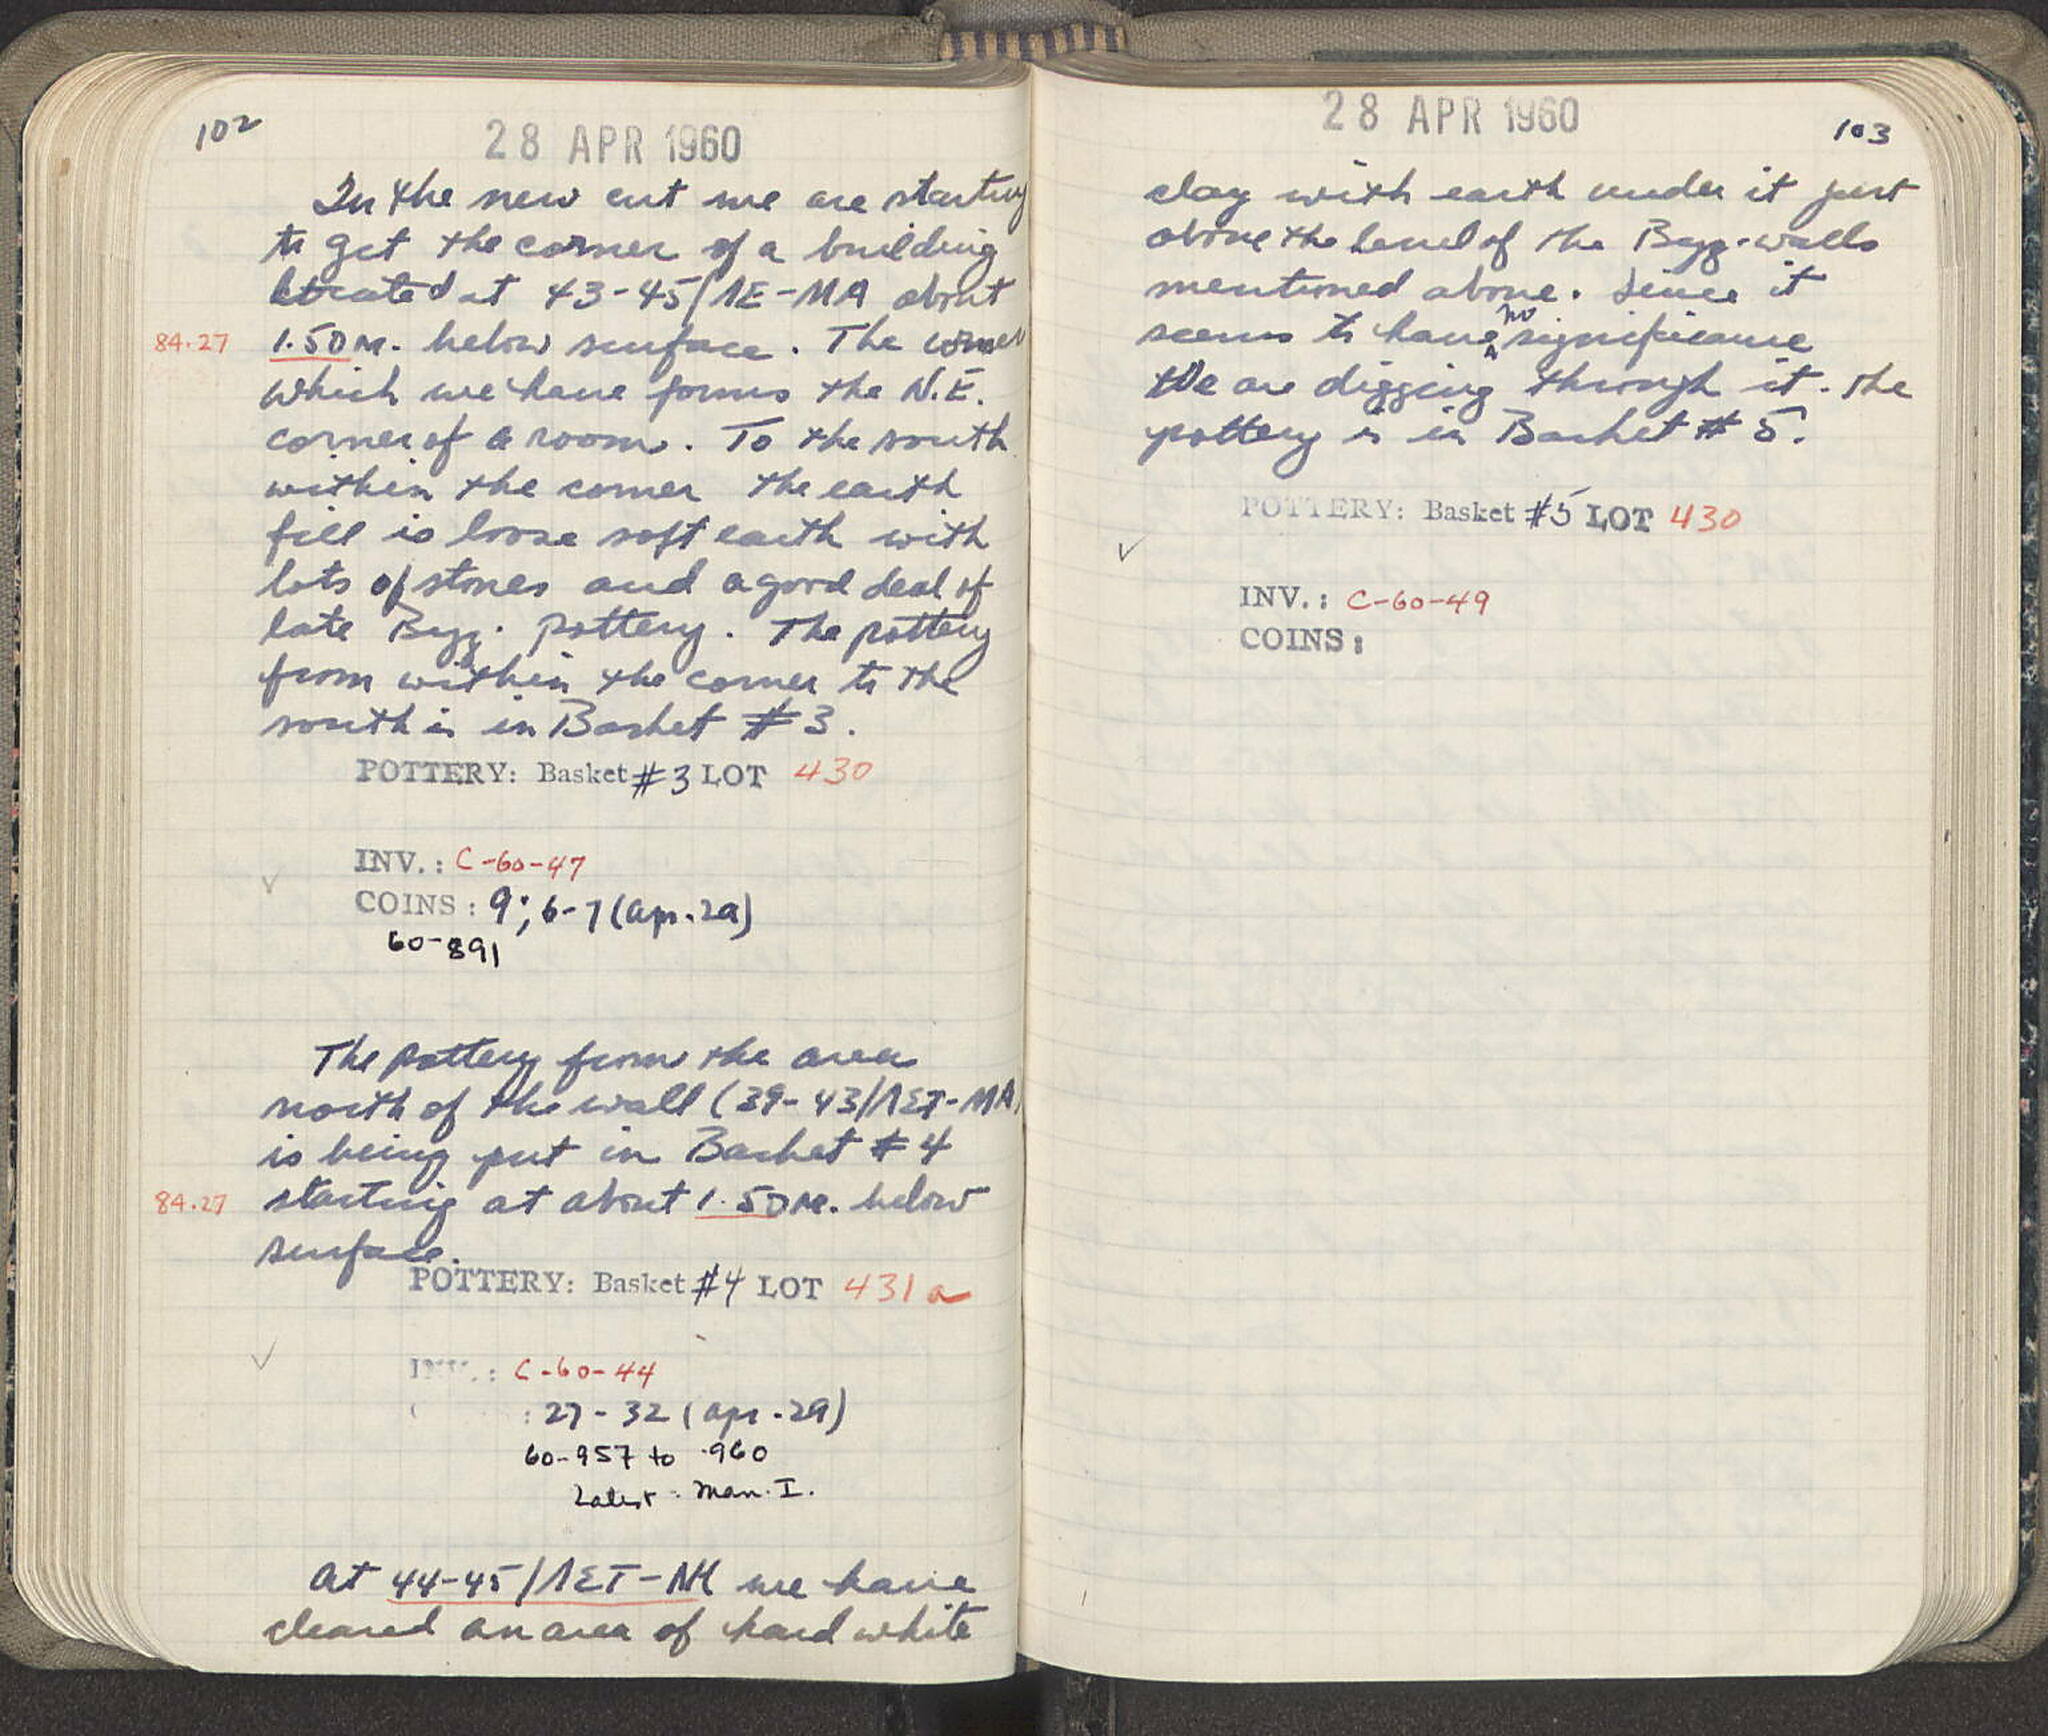 102
28 APR 1960
In the new cut we are starting
to get the corner of a building
located at 43-45/ΛΕ-ΜΑ about
84.27 1.50 M. below surface. The corner
which we have forms the N.E.
corner of a room. To the south
within the corner the earth
fill is loose soft earth with
lots of stones and a good deal of
late Byz. pottery. The pottery
from within the corner to the
south is in Basket #3.
POTTERY: Basket #3 LOT 430
INV.: C-60-47
✓
COINS: 9; 6-7 (Apr. 29)
60-891
The pottery from the area
north of the wall (39-43/ΛΣΤ-ΜΑ)
is being put in Basket #4
84.27 starting at about 1.50 M. below
surface.
POTTERY: Basket #4 LOT 431a
✓
INV.: C-60-44
: 27-32 (Apr. 29)
60-957 to 960
Latest: Man. I.
At 44-45/ΛΣΤ- we have
cleared an area of hard white
28 APR 1960
103
clay with earth under it just
above the level of the Byz. walls
mentioned above. Since it
seems to have no significance
We are digging through it. The
pottery is in Basket #5.
POTTERY: Basket #5 LOT 430
✓
INV.: C-60-49
COINS: